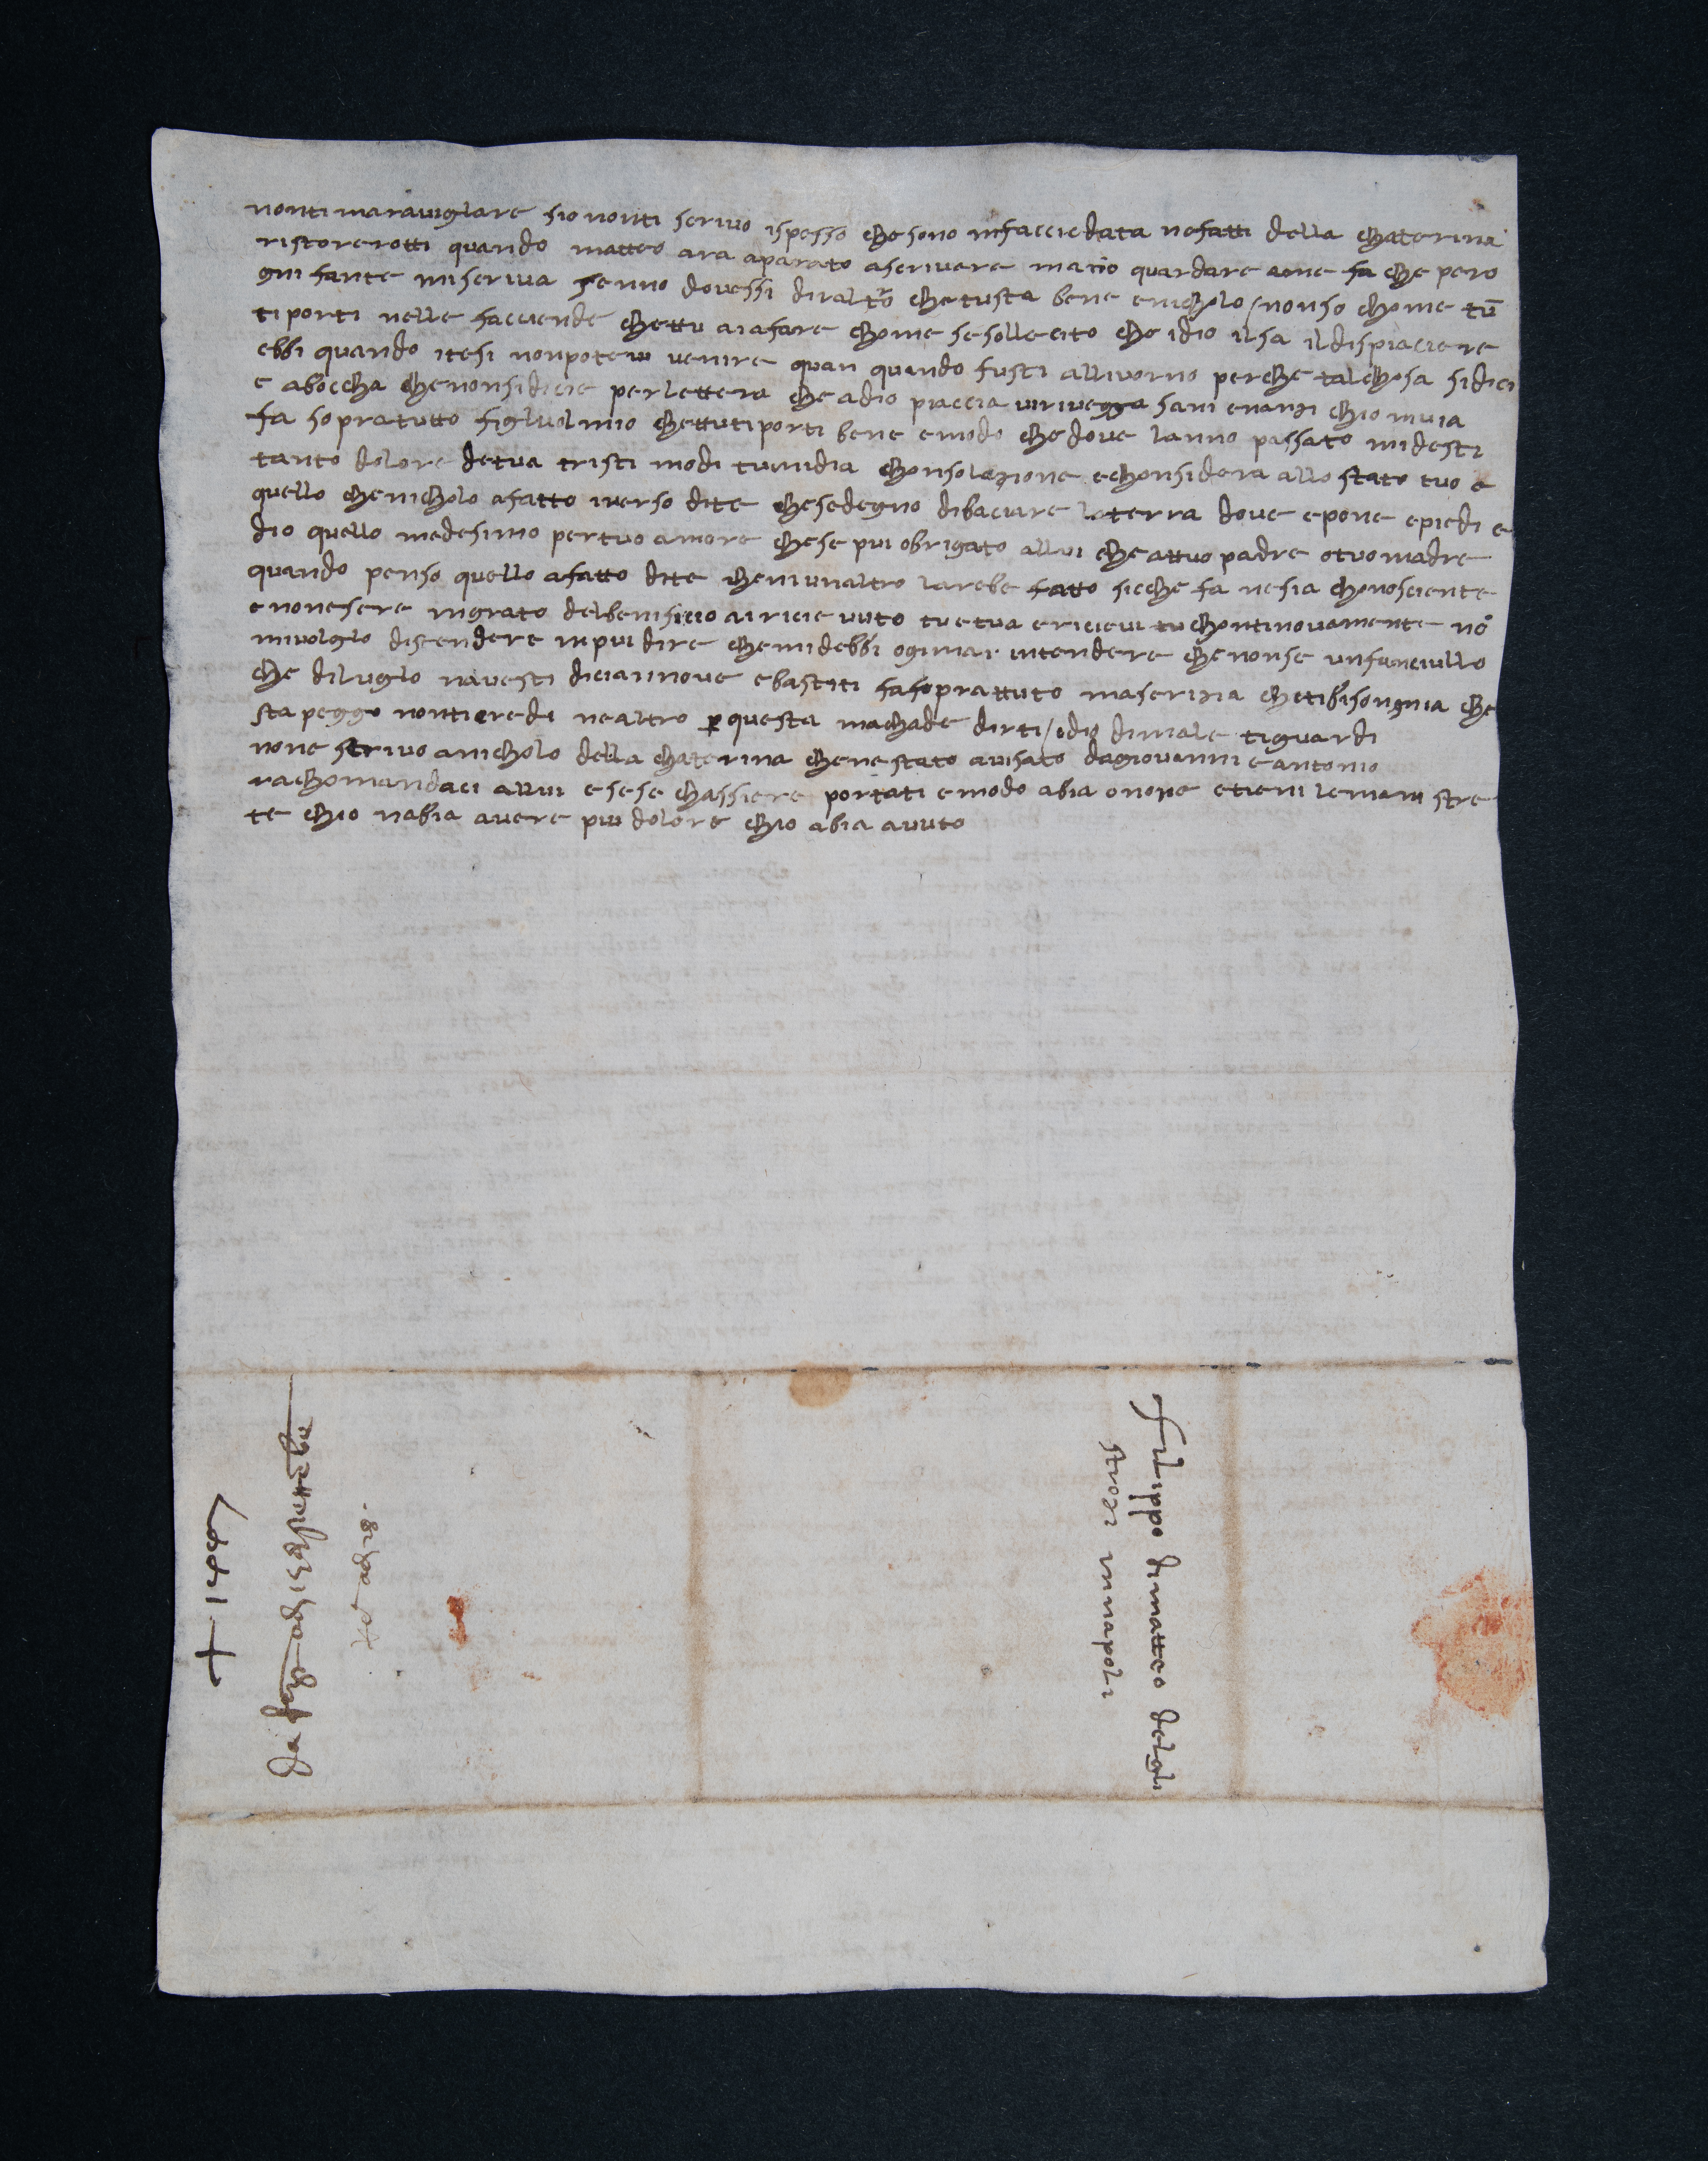 nonti maraviglare sio nonti scrivo ispesso che sono infacciedata nefatti della chaterina
ristorerotti quando matteo ara aparato ascrivere ma no guardare ame fa che pero
gni fante mi scriva senno dovessi dir altro che tu sta bene e nicholo / nonso chome tu
ti porti nelle facciende chettu ai affare chome se sollecito che idio il sa il dispiaciere
ebbi quando itesi non potevi venire quan quando fusti allivorno perche tal chosa si dici
e aboccha che non si dicie per lettera che adio piaccia vi rivegga sani enanzi chio muia
fa sopratutto figluol mio chettu ti porti bene e modo che dove lanno passato mi desti
tanto dolore de tua tristi modi tu mi dia chonsolazione e chonsidera allo stato tuo e
quello che nicholo a fatto inverso dite che se degno di baciare la terra dove e pone e piedi e
dio quello medesimo per tuo amore che se piu obrigato allui che attuo padre o tuo madre
quando penso quello a fatto dite che niunaltro larebe fatto sicche fa ne sia chonosciente
e non esere ingrato del benificio ai ricievuto tu e tua e ricievi tu chontinovamente no
mi volglo distendere in piu dire che mi debbi ogimai intendere che non se un fanciullo
che di luglo navesti diciannove e bastiti fa soprattuto maserizia che ti bisongnia che
sta peggo non ti credi ne altro per questa machade dirti / idio di male ti guardi
none scrivo a nicholo della chaterina che ne stato avisato da giovanni e antonio
rachomandaci allui e se se chassiere portati e modo abia onore e tieni le mani stre
te chio nabia avere piu dolore chio abia avuto
filippo di matteo delgli
strozi in napoli
+ 1447